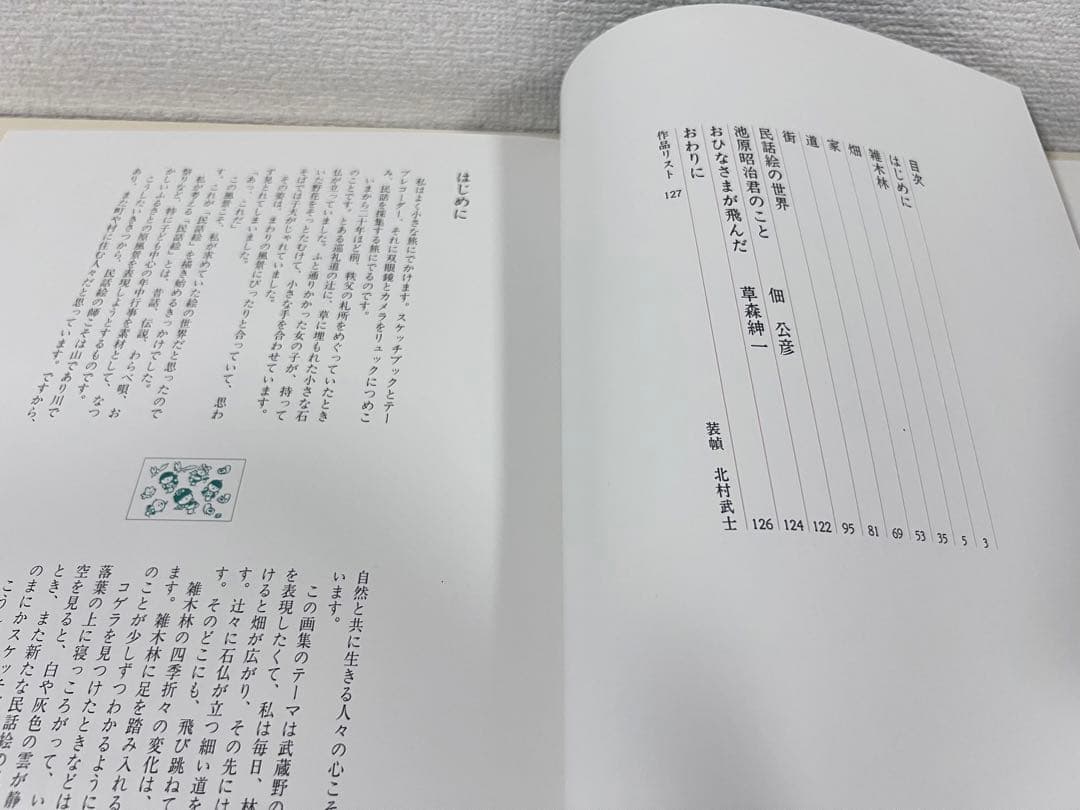 目次
はじめに 3
雑木林 5
畑 35
家 53
道 69
街 81
民話絵の世界 95
池原昭治君のこと 佃 公彦 122
おひなさまが飛んだ 草森紳一 124
おわりに 126
作品リスト 127
装幀 北村武士
はじめに
私はよく小さな旅にでかけます。スケッチブックとテー
プレコーダー、それに双眼鏡とカメラをリュックにつめこ
み、民話を採集する旅にでるのです。
いまから二十年ほど前、秩父の札所をめぐっていたとき
のことです。とある巡礼道の辻に、草に埋もれた小さな石
仏が立っていました。ふと通りかかった女の子が、持って
いた野花をそっとたむけて、小さな手を合わせています。
そばでは子犬がじゃれていました。
その姿は、まわりの風景にぴったりと合っていて、思わ
ず見とれてしまいました。
「あっ、これだ」
この風景こそ、私が求めていた絵の世界だと思ったので
す。これが「民話絵」を描き始めるきっかけでした。
私が考える「民話絵」とは、昔話、伝説、わらべ唄、お
祭りなど、特に子ども中心の年中行事を素材として、なつ
かしいふるさとの原風景を表現しようとするものです。
こうしたいきさつから、民話絵の師こそは山であり川で
あり、また町や村に住む人々だと思っています。ですから、
自然と共に生きる人々の心こそ
います。
この画集のテーマは武蔵野の
を表現したくて、私は毎日、林
けると畑が広がり、その先には
す。辻々に石仏が立つ細い道を
す。そのどこにも、飛び跳ねて
雑木林の四季折々の変化は、
ます。雑木林に足を踏み入れる
のことが少しずつわかるように
コゲラを見つけたときなどは
落葉の上に寝っころがって、い
空を見ると、白や灰色の雲が静
とき、また新たな民話絵の
のまにかスケッチ